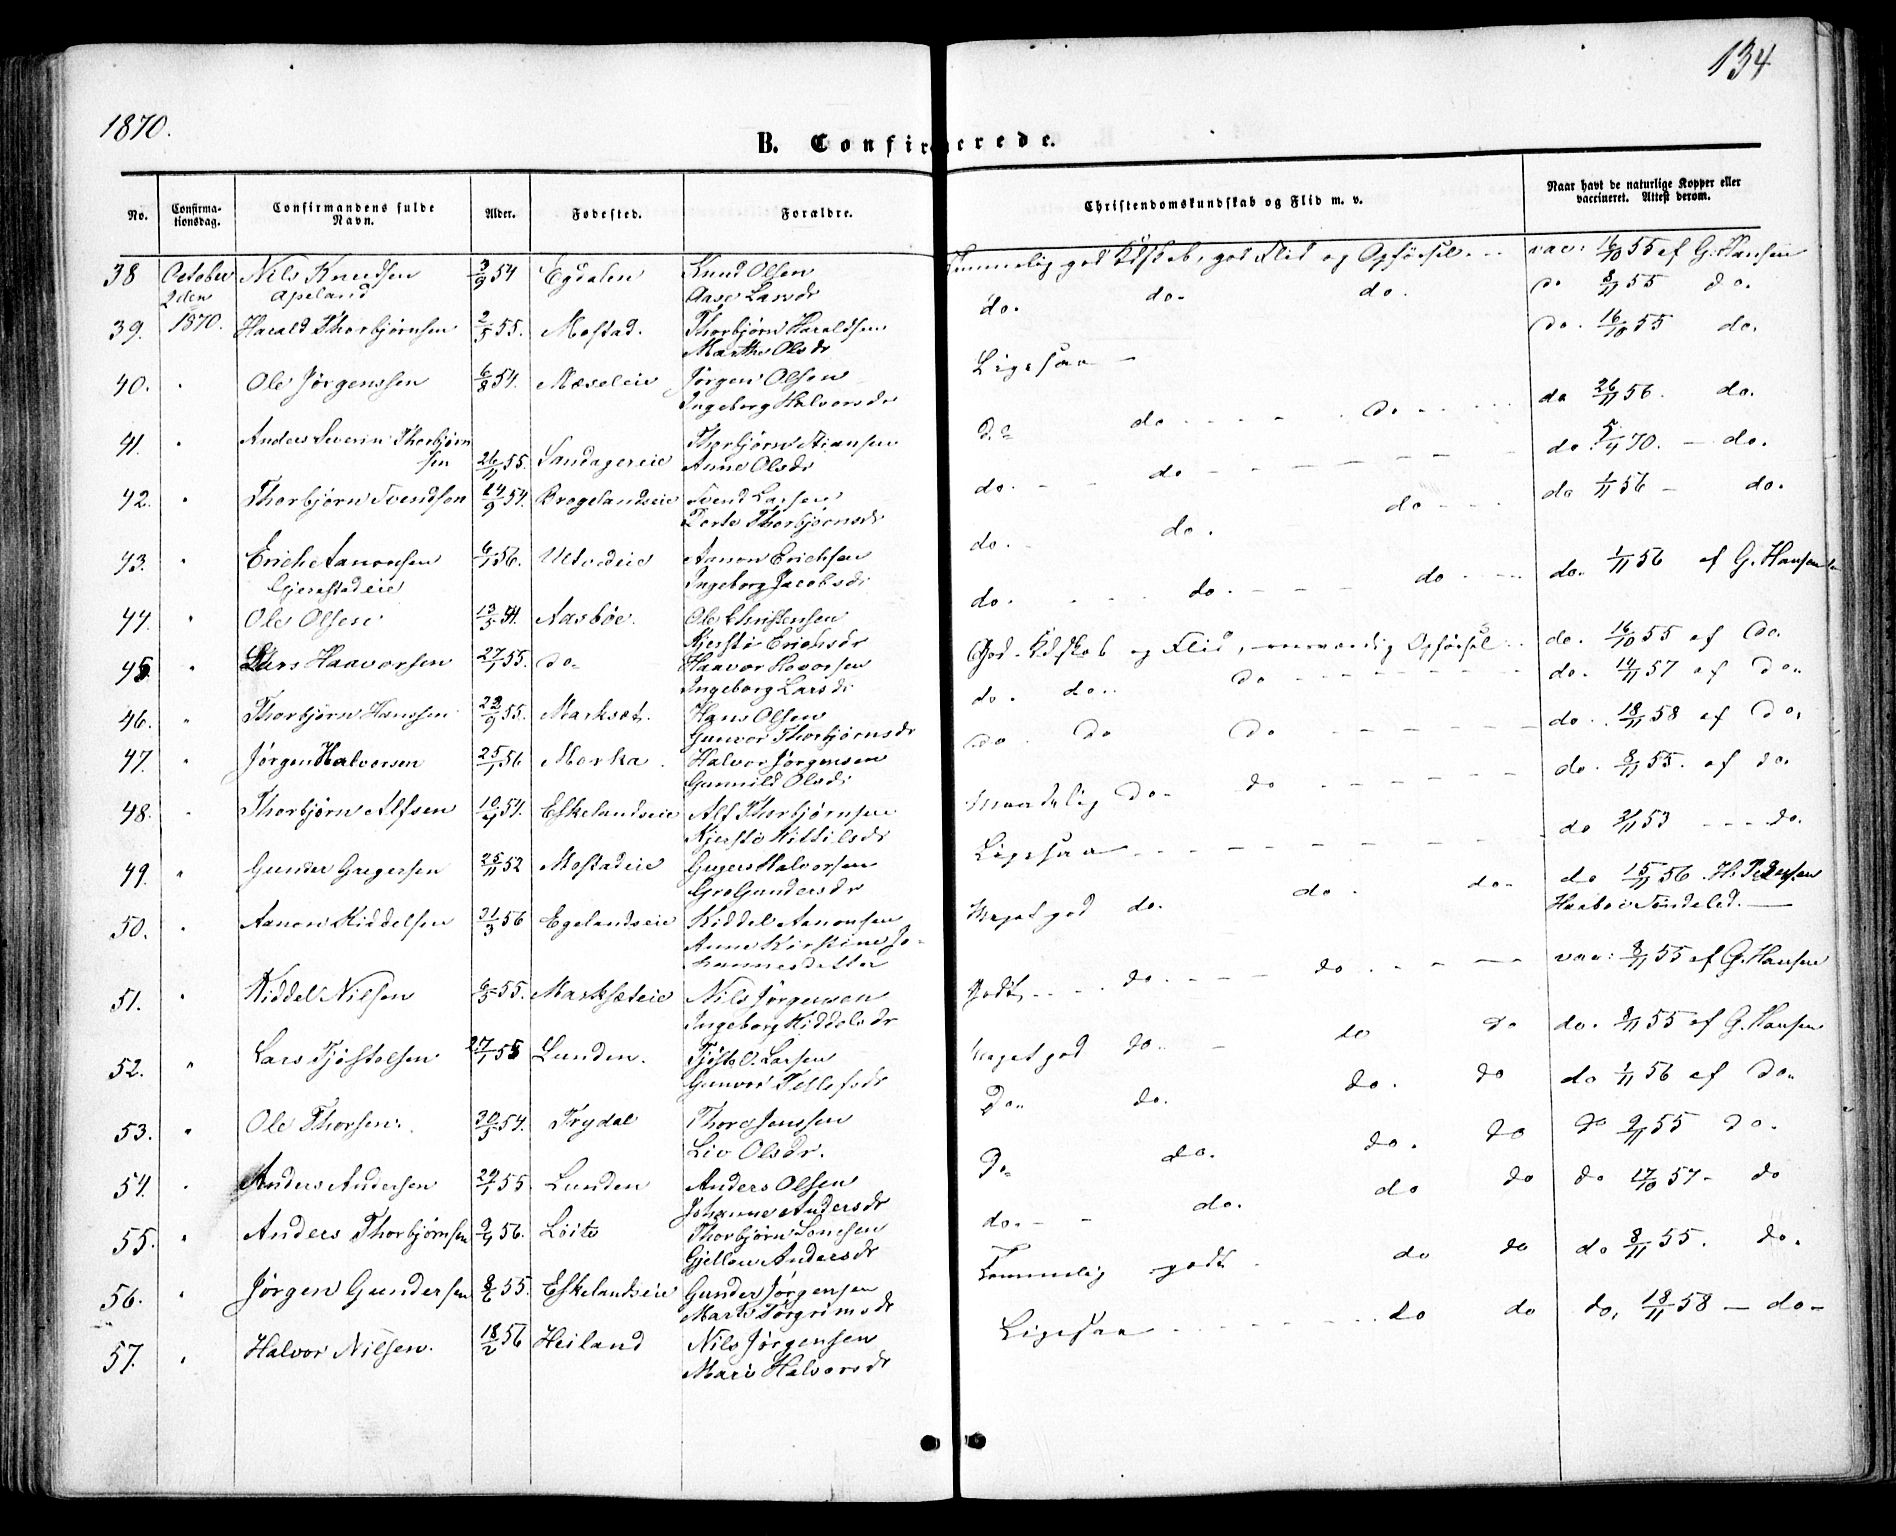 134
1870.
B. Confirmerede.
No.
Confirma-
tionsdag.
Confirmandens fulde
Navn.
Alder.
Fødested.
Forældre.
Christendomskundskab og Flid m. v.
Naar havt de naturlige Kopper eller
vaccineret. Attest derom.
38 October Nils Knudsen 3/9 54 Egdalen Knud Olsen Temmelig god Kdskab, god Flid og Opførsel vac: 16/10 55 af G. Hansen
2den Apeland Aase Larsdr
39. 1870. Harald Thorbjørnsen 2/5 55. Mostad. Thorbjørn Haraldsen do. do. do. do 8/11 55 do.
Marthe Olsdr
40. " Ole Jørgenssen 6/8 54. Mæseleie Jørgen Olsen Ligesaa do. 16/10 55 do.
Ingeborg Halvorsdr
41. " Anders Severin Thorbjørn Thorbjørn Stiansen do do do do 26/11 56. do.
sen 26/11 55. Sandagereie Anne Olsdr
42. " Thorbjørn Svendsen 24/9 54. Brogelandseie Svend Larsen do. do do 5/4 70. do.
Dorte Thorbjørnsdr
43. " Erich Aanonsen 6/1 56. Ulsvdeie Aanon Erichsen do. do. do do 1/11 56 do.
Gjerestadeie Ingeborg Jacobsdr
44. " Ole Olsen 13/5 54. Aasbøe. Ole Christensen do. do. do do. 1/11 56 af G. Hansen
Kjerstie Erichsdr
45 " Lars Haavorsen 27/1 55. do Haavor Haavorsen God Kdskab og Flid, Opførsel do. 16/10 55 af Do.
Ingeborg Larsdr
46. " Thorbjørn Hanssen 22/9 55. Marksæt. Hans Olsen do. do. do do. 14/11 57 af Do.
Gunvor Thorbjørnsdr
47. " Jørgen Halvorsen 25/1 56 Morka. Halvor Jørgensen do. do do do. 18/11 58 af Do.
Gunnild Olsdr
48. Thorbjørn Alfsen 10/4 54. Eskelandseie Alf Thorbjørnsen maadelig do. do do. 8/11 55. af do.
Kjerstie Kittilsdr
49. " Gunder Gregersen 25/11 52 Mostadeie Gregers Halvorsen Ligesaa do 2/11 53 do.
Gro Gundersdr
50. " Aanon Kiddelsen 31/3 56 Egelandseie Kiddel Aanonsen Meget god do. do. do. do 15/11 56 H. Pedersen
Anne Kirstine Jo- Haabo i Søndeled.
hannesdatter
51. " Kiddel Nilsen 6/5 55. Marksæteie Nils Jørgensen Godt do. do vac: 8/11 55 af G. Hansen
Ingeborg Kiddelsdr
52. " Lars Tjøstolsen 27/1 55 Lunden. Tjøstol Larsen Meget god do. do do do. 8/11 55 af G. Hansen
Gunvor Tellefsdr
53. " Ole Thorsen. 30/5 54. Trydal Thore Jenssen Do. do. do. do do 1/11 56 af Do.
Liv Olsdr.
54. " Anders Andersen 29/1 55 Lunden Anders Olsen Do. do. do. do do 9/11 55 do.
Johanne Andersdr
55. " Anders Thorbjørnsen 9/4 56. Løite Thorbjørn Sensen do. do. do do do 17/10 57 do
Gjellau Andersdr
56. " Jørgen Gundersen 8/6 55. Eskelandseie Gunder Jørgensen Temmelig godt. do do do 8/11 55. do.
Marte Torgrimsdr
57. " Halvor Nilsen. 18/2 56 Heiland Nils Jørgensen Ligesaa do do do, 18/11 58 do
Mari Halvorsdr